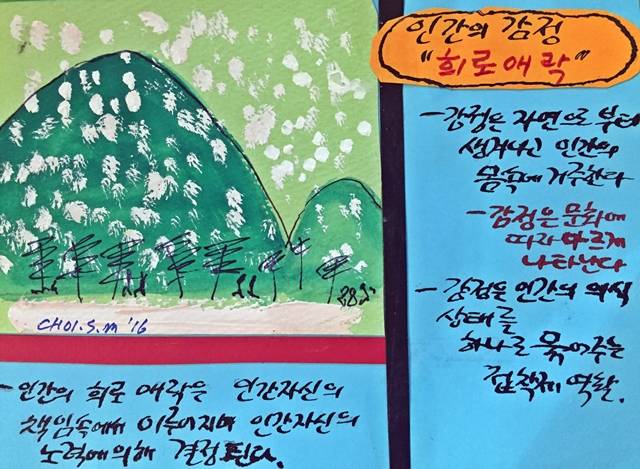 인간의 감정
"희로애락"
- 감정은 자연으로 부터
생겨나 인간의
몸속에 거주한다
- 감정은 문화에
따라 다르게
나타난다
- 감정은 인간의 의식
상태를
하나로 묶어주는
접착제 역할.
CHOI.S.M '16
- 인간의 희로애락은 인간자신의
책임속에서 이루어지며 인간자신의
노력에 의해 결정된다.